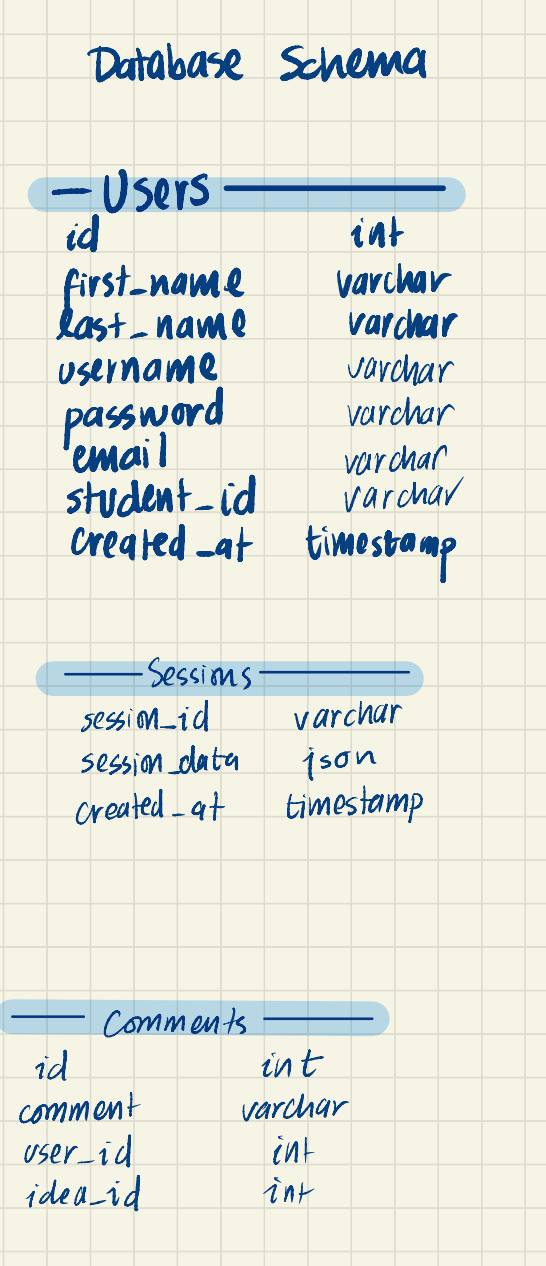 Database Schema
Users
id int
first_name varchar
last_name varchar
username varchar
password varchar
email varchar
student_id varchar
created_at timestamp
Sessions
session_id varchar
session_data json
created_at timestamp
Comments
id int
comment varchar
user_id int
idea_id int